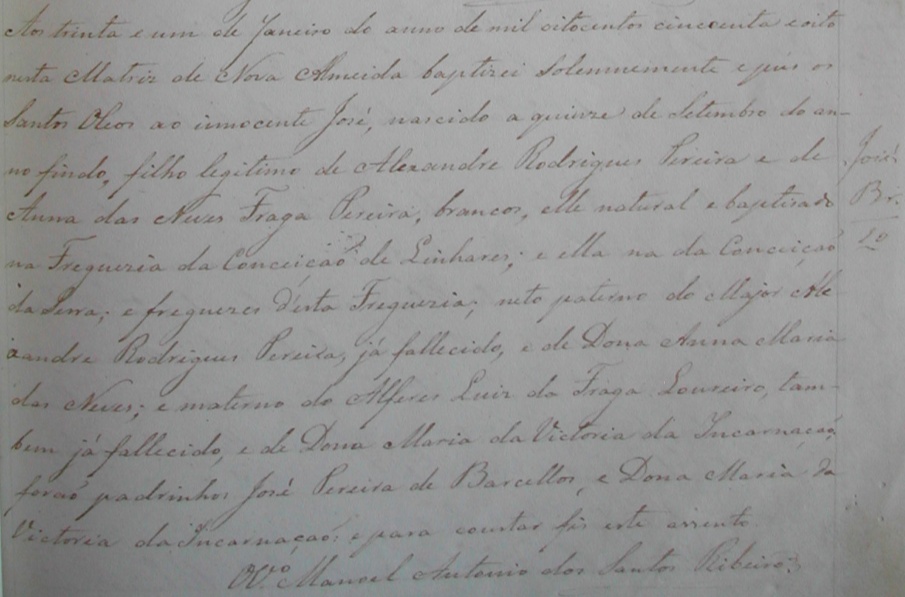 Aos trinta e um de Janeiro do anno de mil oitocentos cincoenta e oito
nesta Matriz de Nova Almeida baptizei solemnemente e pús os
Santos Oleos ao innocente José, nascido a quinze de Setembro do an-
no findo, filho legitimo de Alexandre Rodrigues Pereira e de
Anna das Neves Fraga Pereira, brancos, elle natural e baptisado
na Freguezia da Conceicaõ de Linhares; e ella na da Conceiçaõ
da Serra; e freguezes d'esta Freguezia; neto paterno do Major Ale
xandre Rodrigues Pereira, já fallecido, e de Dona Anna Maria
das Neves; e materno do Alferes Luiz da Fraga Loureiro, tam-
bem já fallecido, e de Dona Maria da Victoria da Incarnaçaõ,
foraõ padrinhos José Pereira de Barcellos, e Dona Maria da
Victoria da Incarnaçaõ: e para constar fis este assento.
O V.º Manoel Antonio dos Santos Ribeiro.
José
Br.